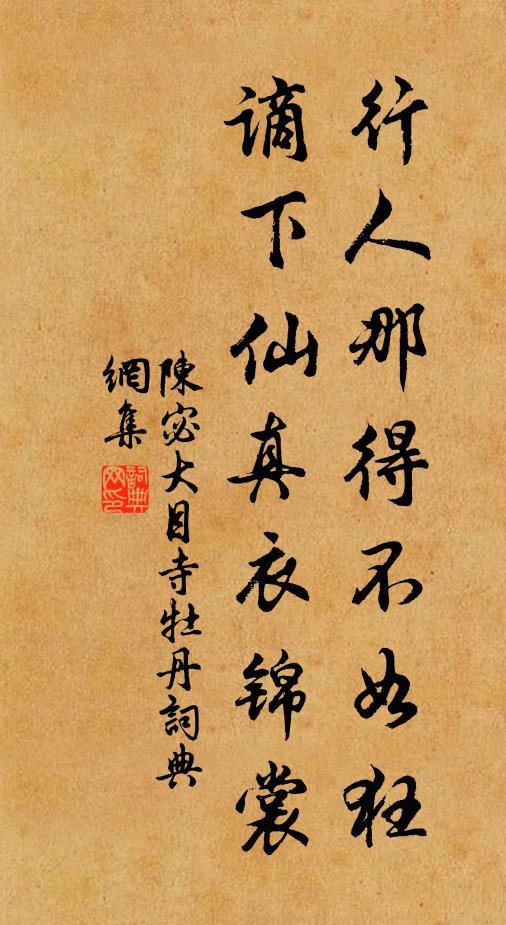 行人那得不如狂
謫下仙真衣錦裳
陳宓大目寺牡丹詞典
網集
詞典網印